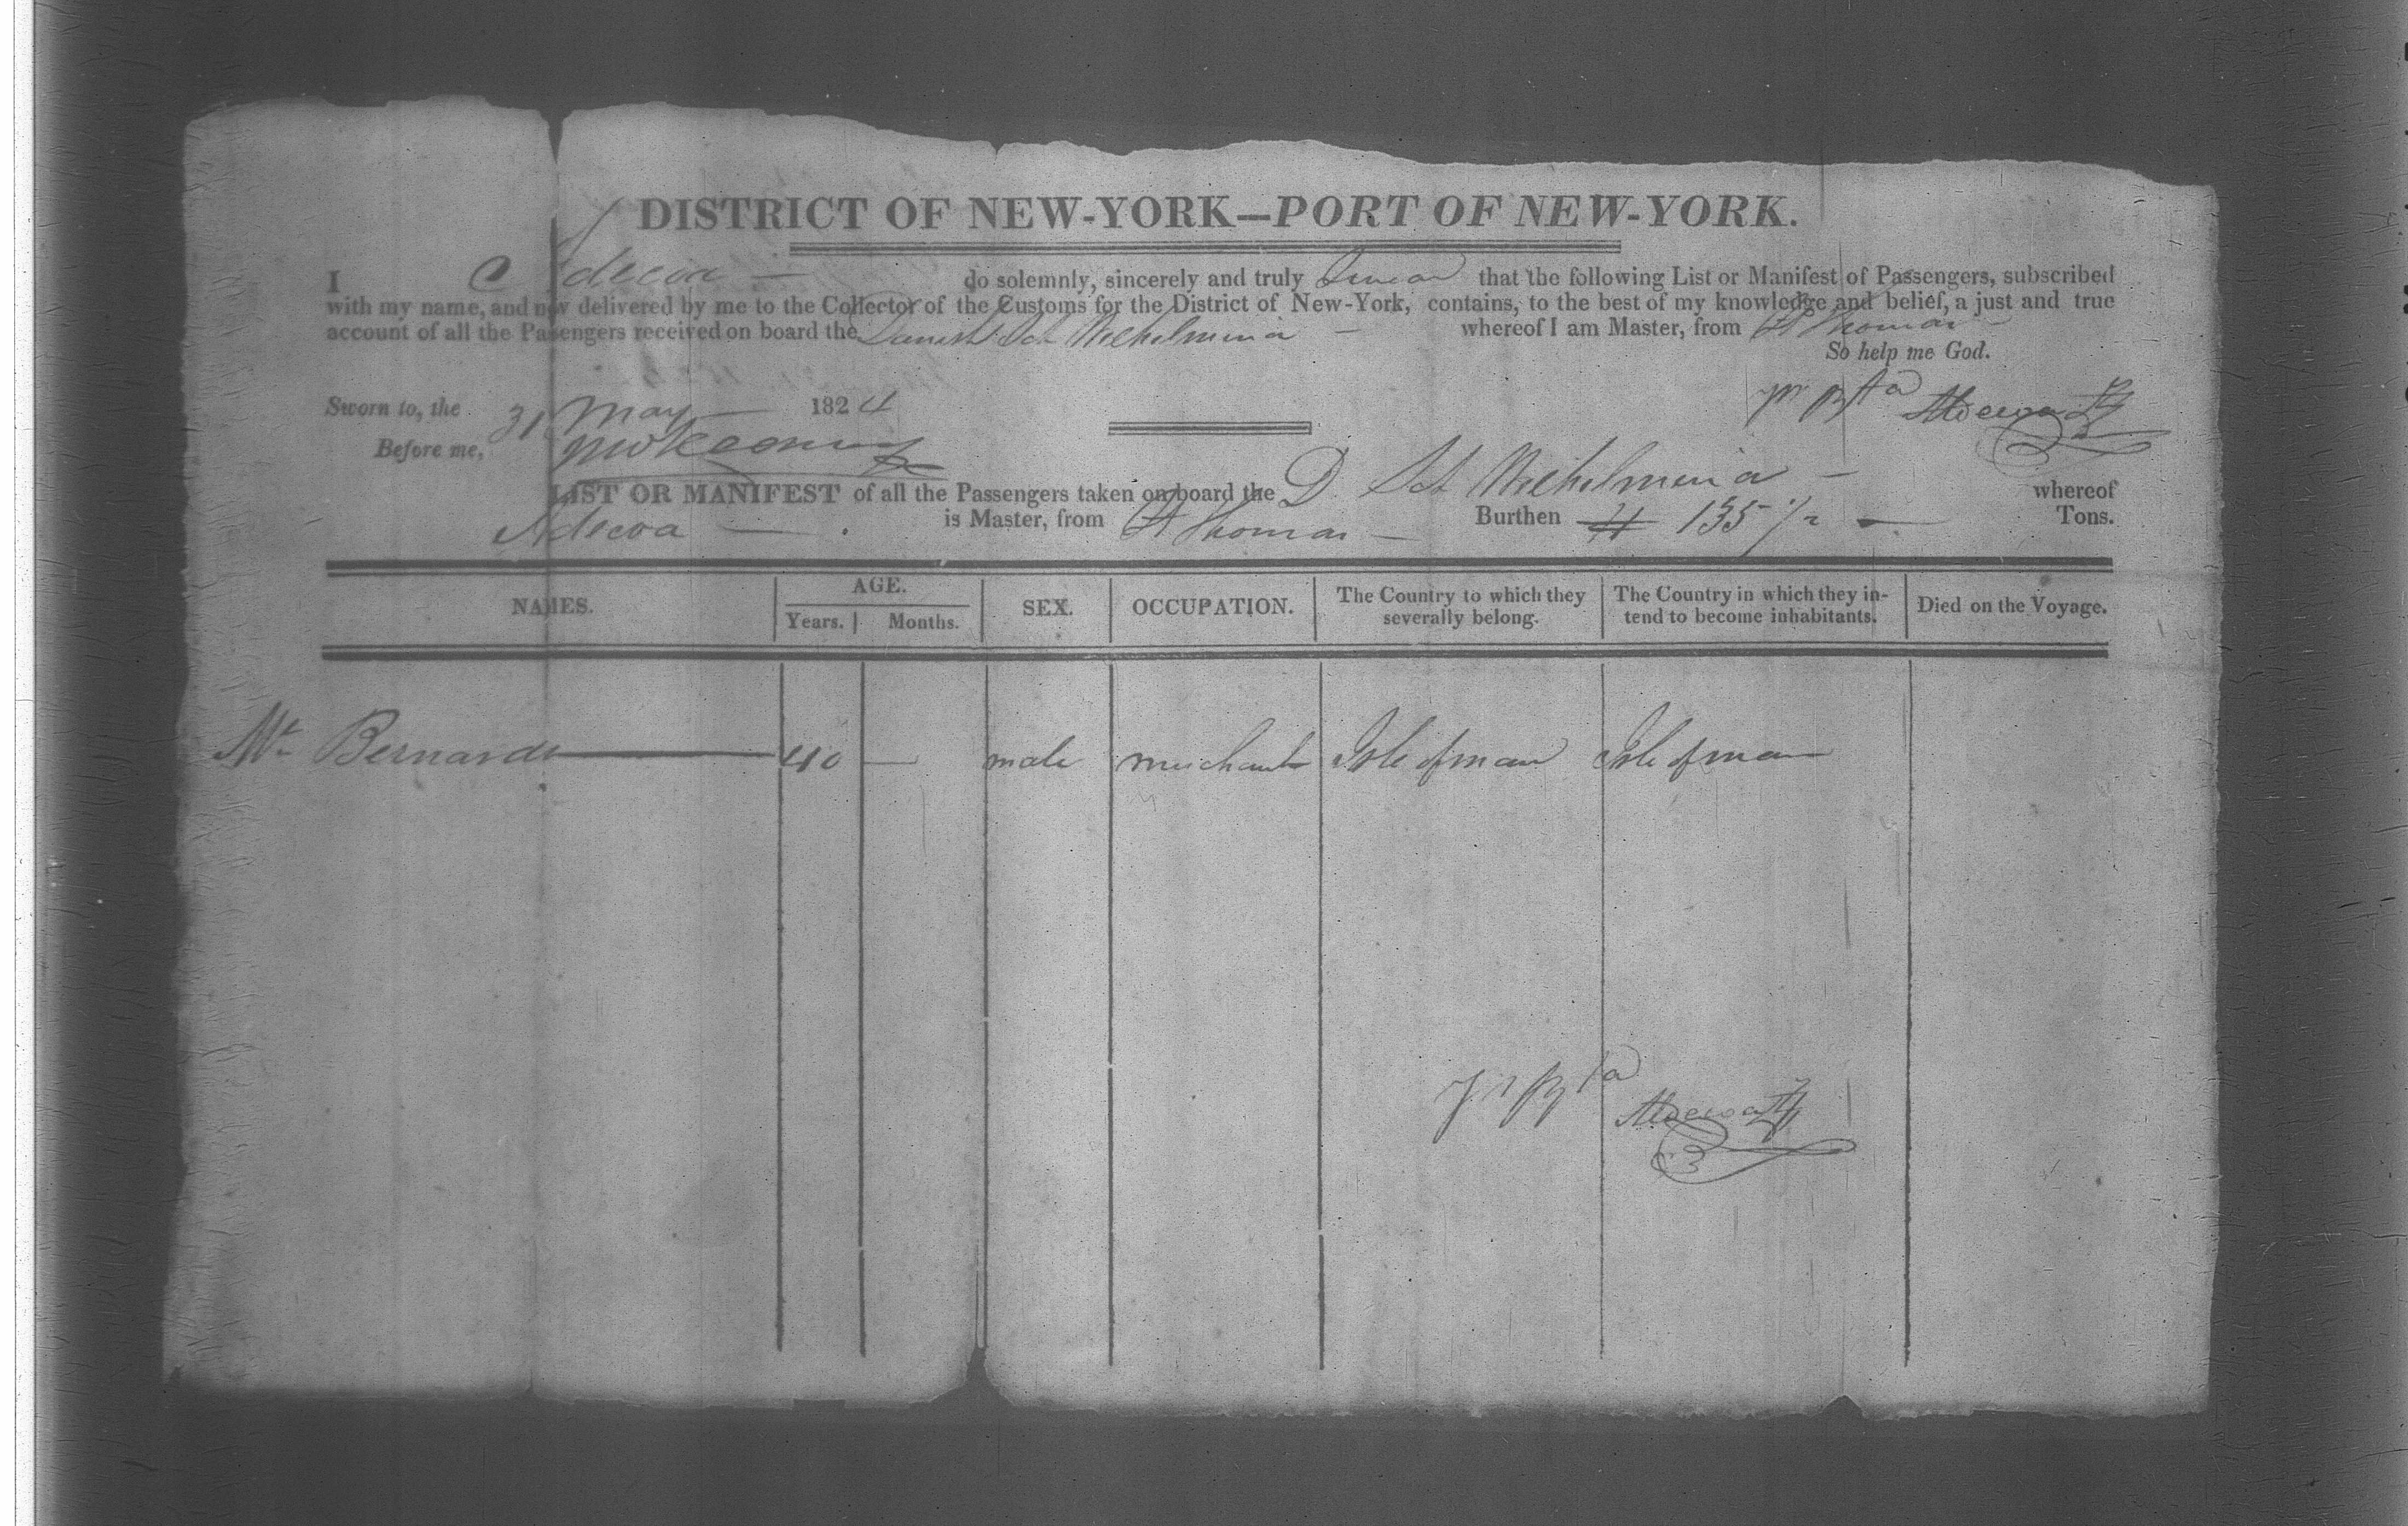 DISTRICT OF NEW-YORK—PORT OF NEW-YORK.
I Adecoa — do solemnly, sincerely and truly Swear that the following List or Manifest of Passengers, subscribed
with my name, and now delivered by me to the Collector of the Customs for the District of New-York, contains, to the best of my knowledge and belief, a just and true
account of all the Passengers received on board the Danish Sch Wilhelmina — whereof I am Master, from St Thomas —
So help me God.
Sworn to, the 31 May — 1824
Before me,
LIST OR MANIFEST of all the Passengers taken on board the D Sch Wilhelmina — whereof
Adecoa — is Master, from St Thomas — Burthen 135 1/2 — Tons.
NAMES. AGE. Years. Months. SEX. OCCUPATION. The Country to which they severally belong. The Country in which they intend to become inhabitants. Died on the Voyage.
Mr Bernards — 40 — male merchant Isle of man Isle of man